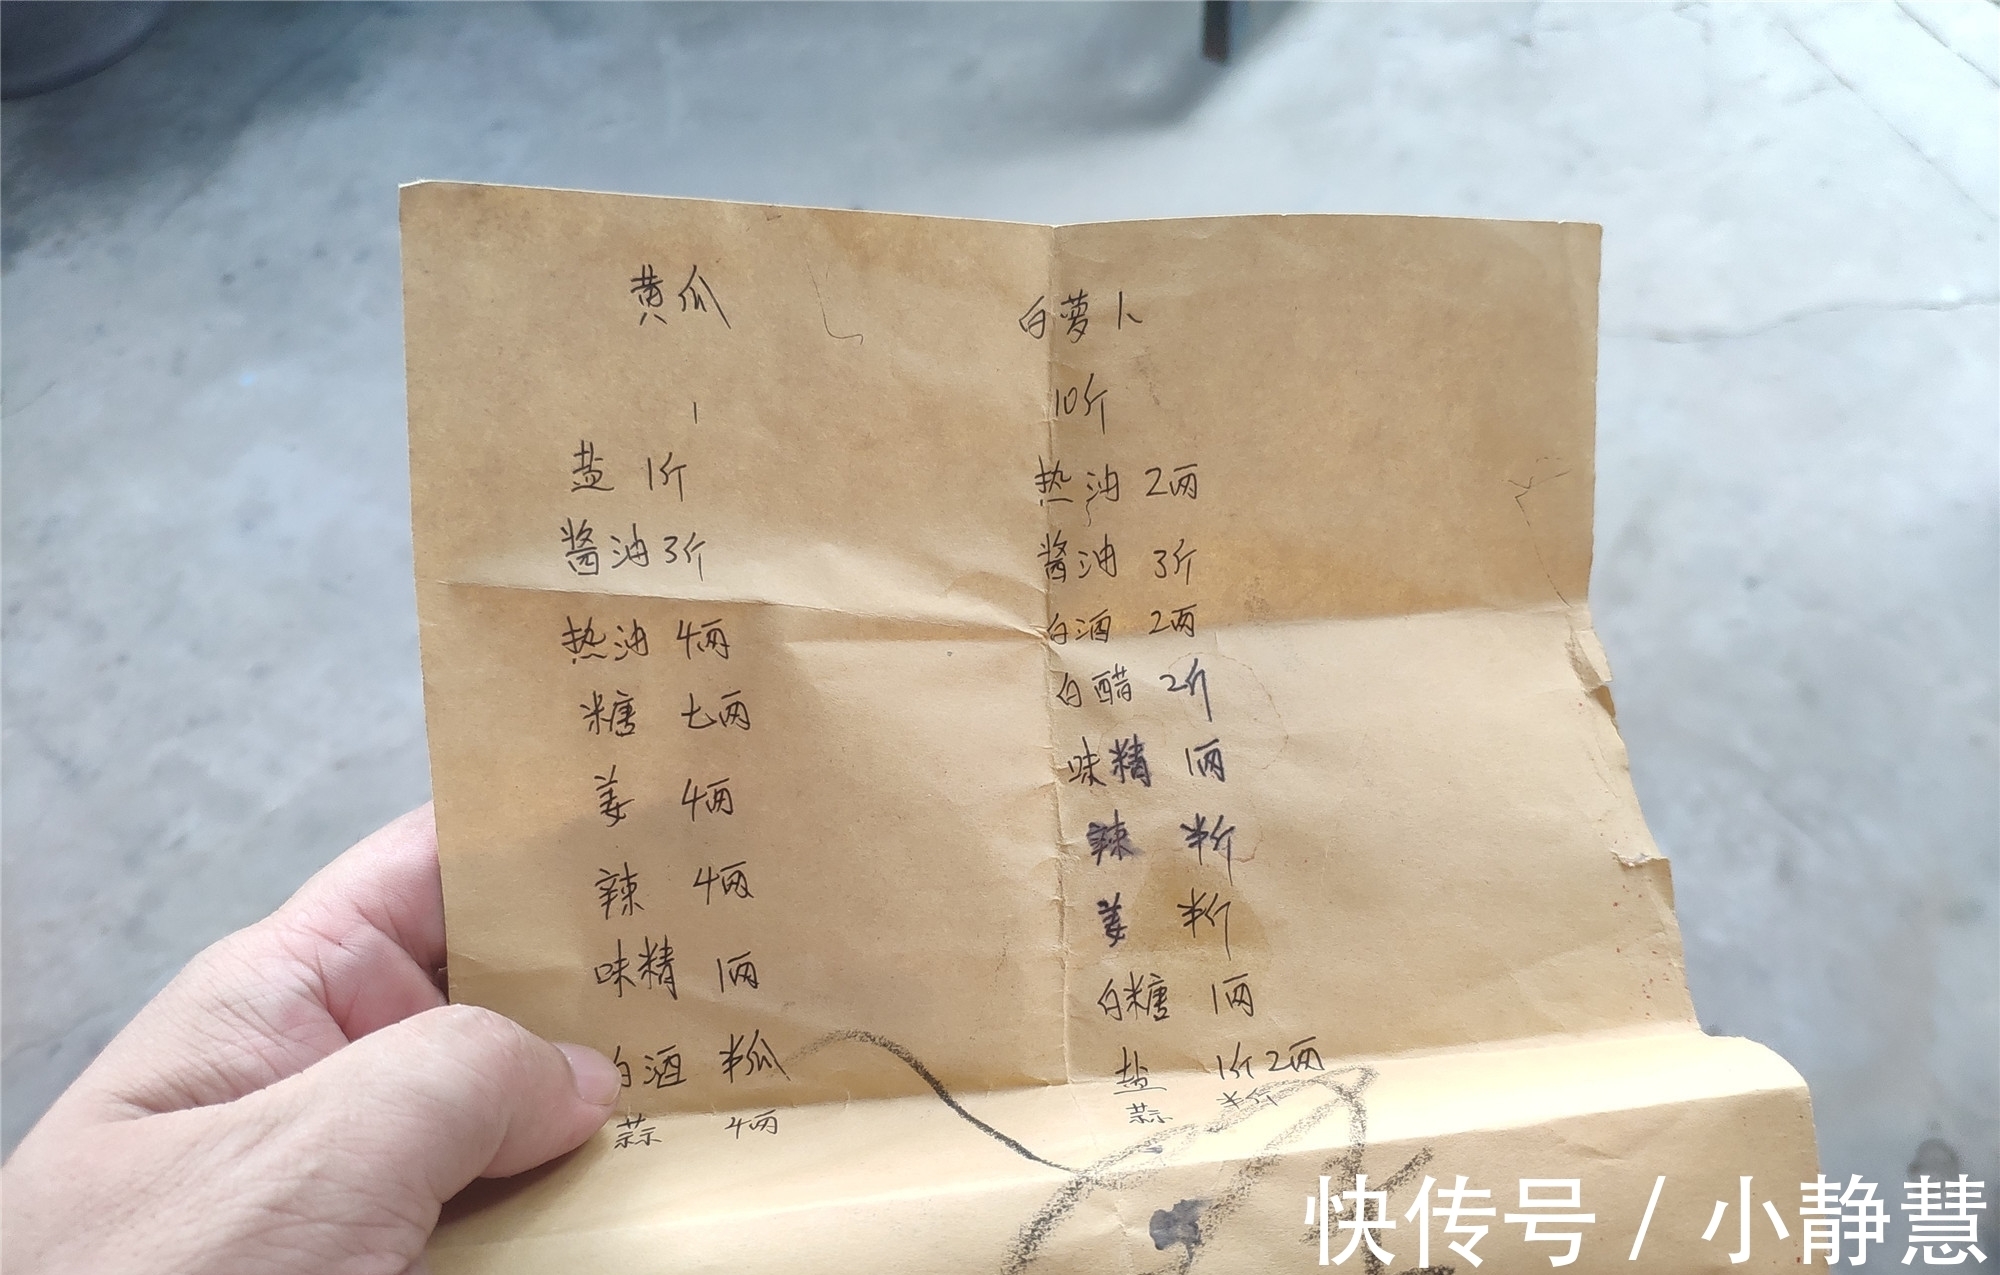 黄瓜
盐 1斤
酱油 3斤
热油 4两
糖 七两
姜 4两
辣 4两
味精 1两
白酒 半瓜
蒜 4两
白萝卜
10斤
热油 2两
酱油 3斤
白酒 2两
白醋 2斤
味精 1两
辣 半斤
姜 半斤
白糖 1两
盐 1斤2两
蒜 半斤
快传号 / 小静慧